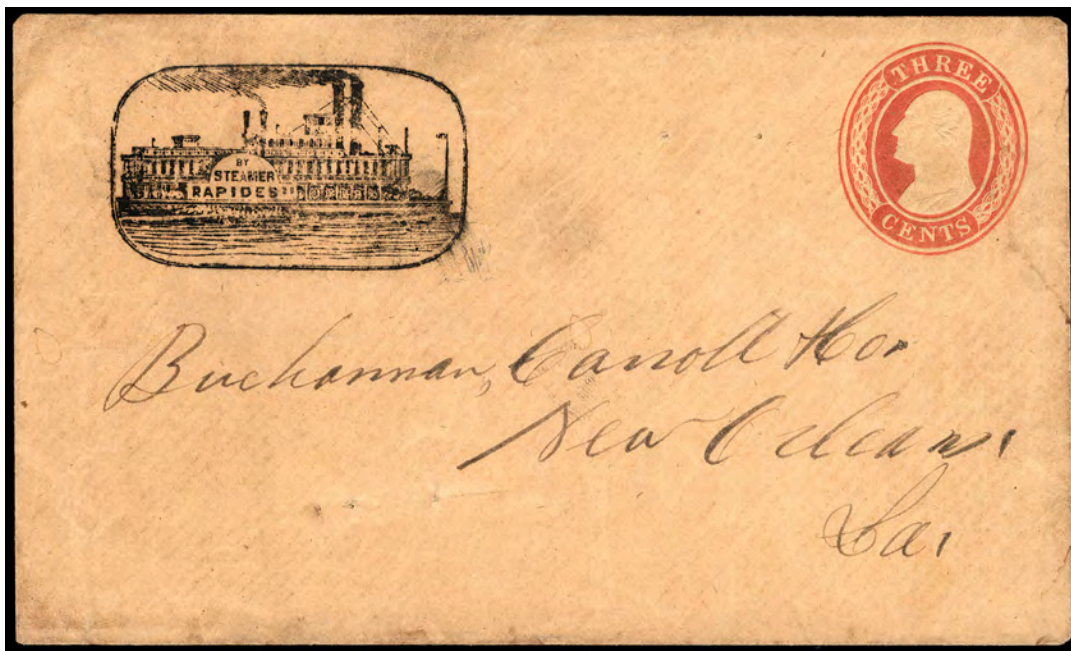 BY
STEAMER
RAPIDES
THREE
CENTS
Buchannan, Carroll & Co.
New Orleans
La.